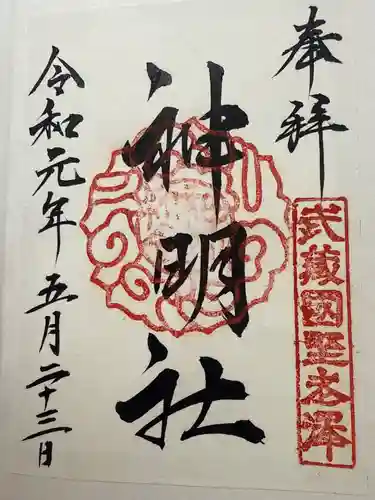 奉拝
武蔵國野老澤
神明社
令和元年五月二十三日